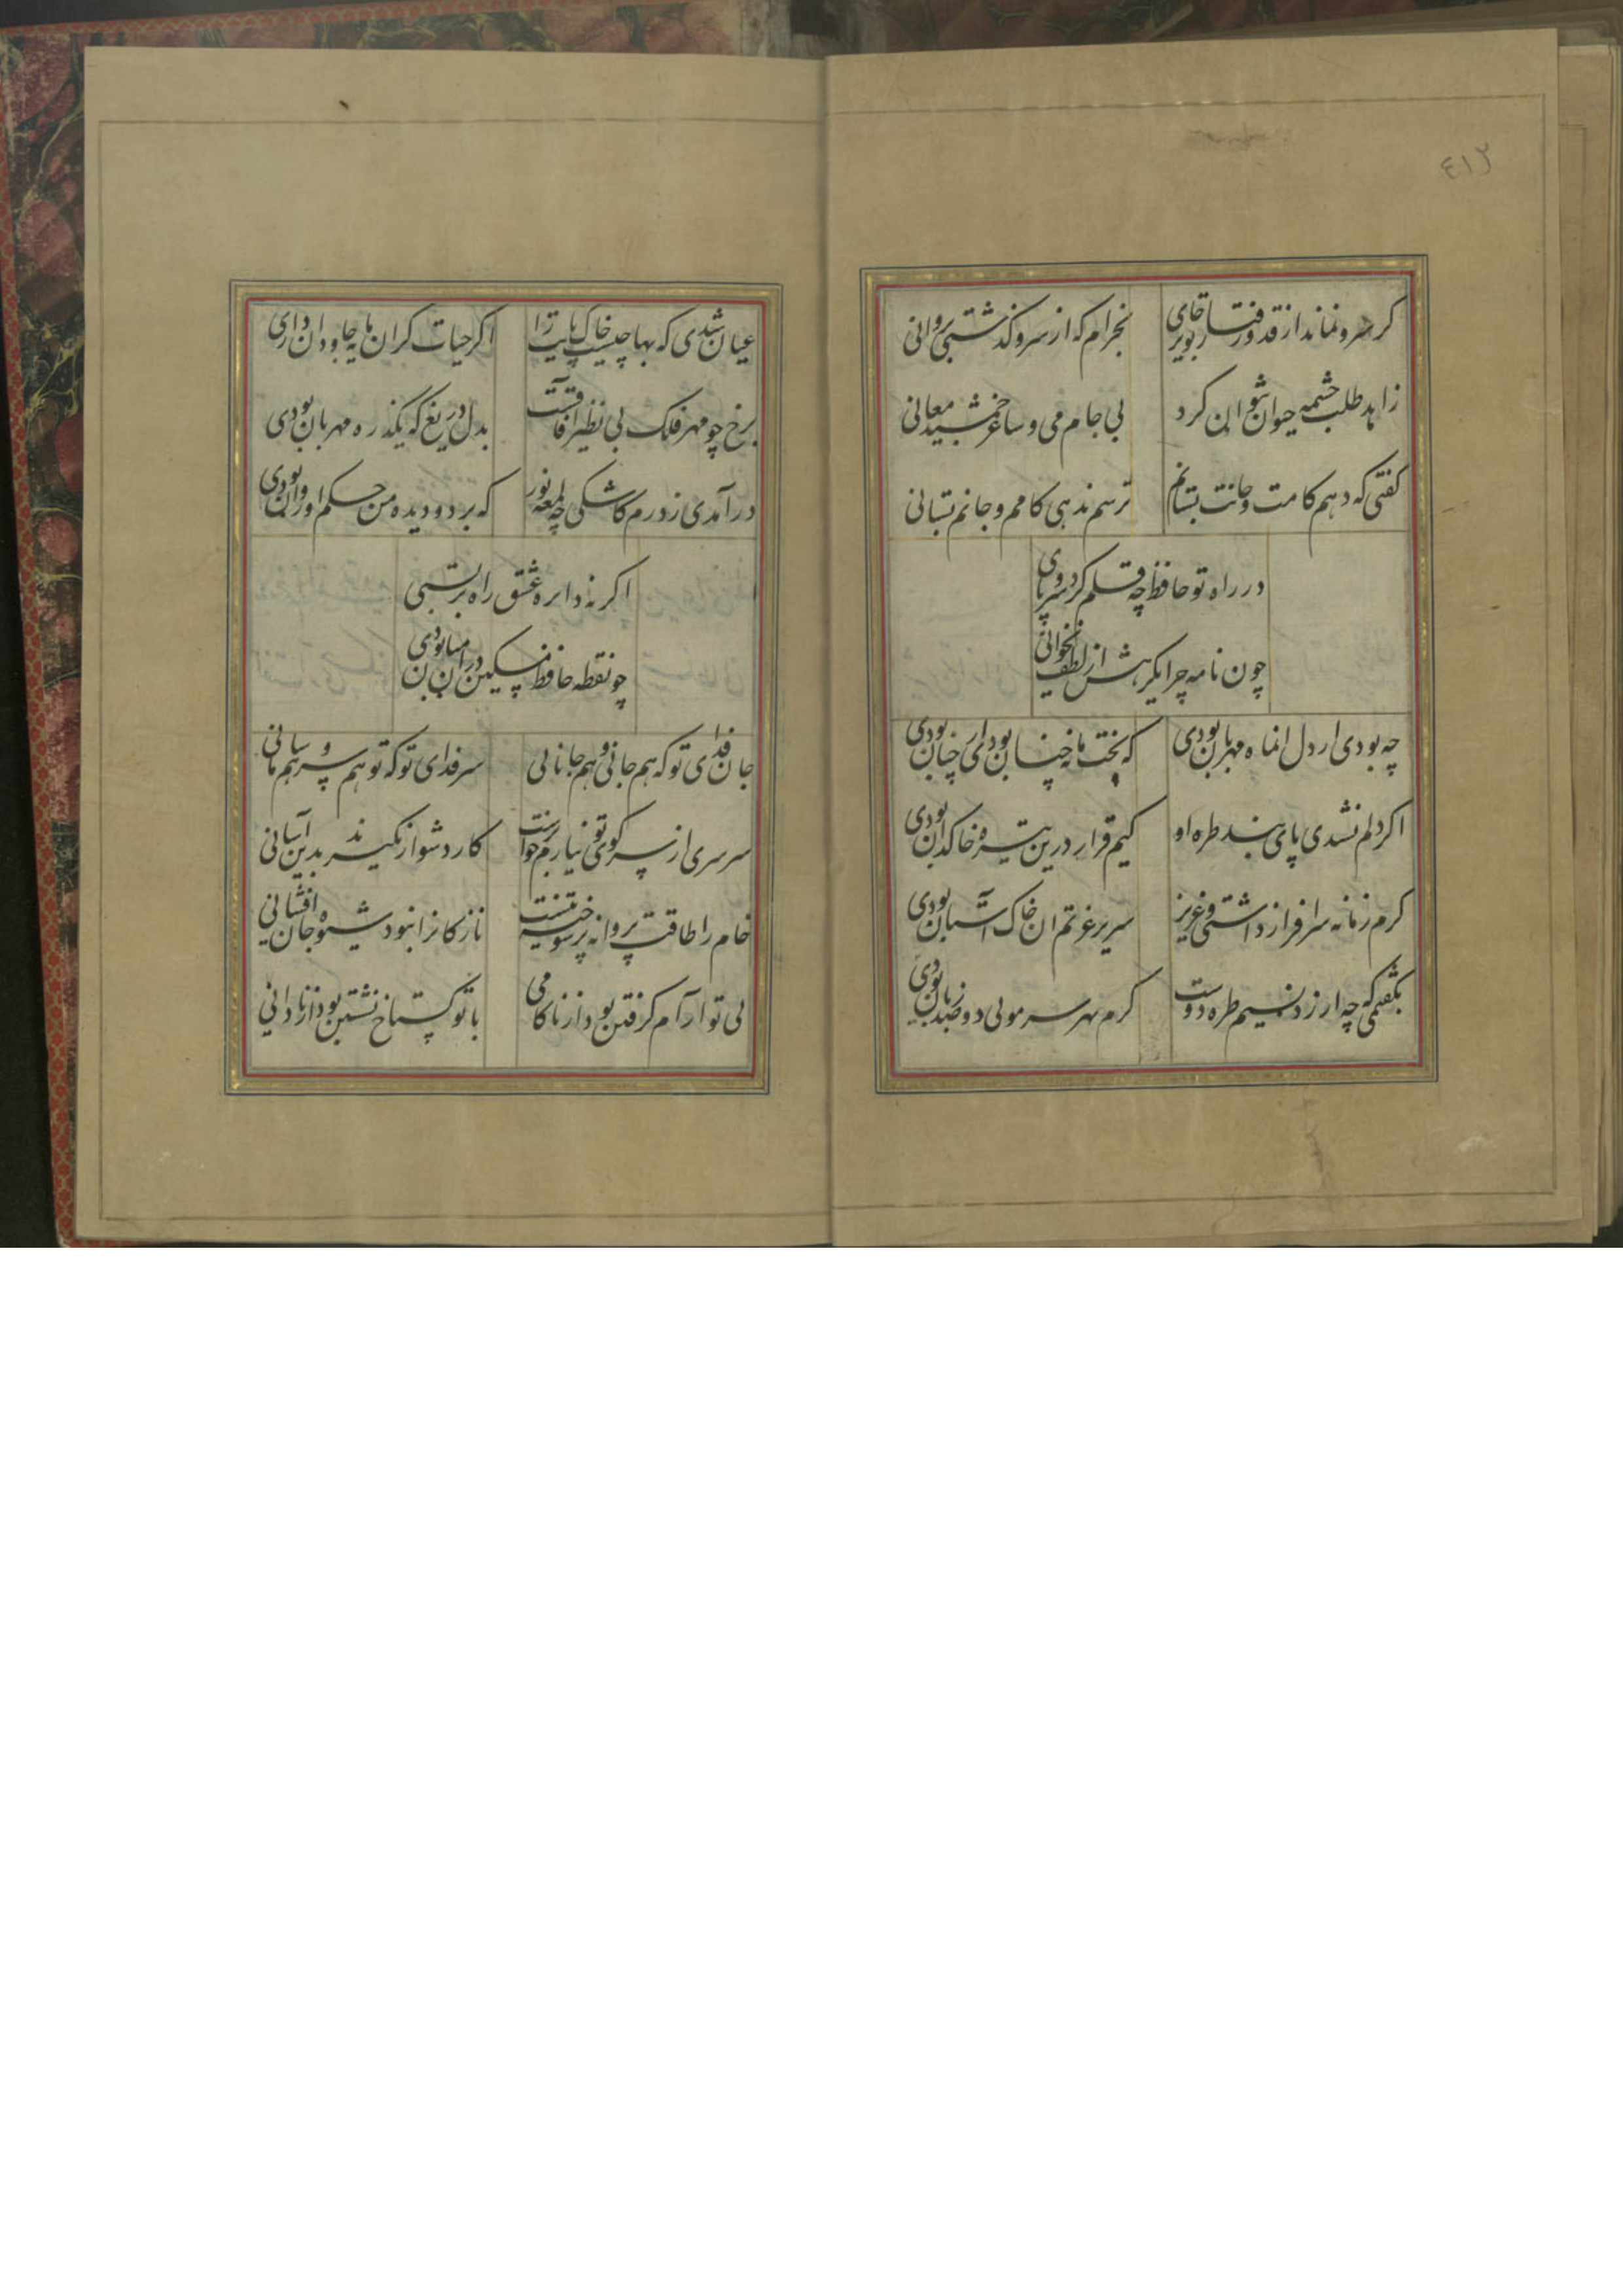 ٤١٢
گر سرو نماند از قد و رفتار تو بر جای
بخرام که از سرو گذشتی بروانی
زاهد طلب چشمه حیوان نتوان کرد
بی جام می و ساغر جمشید معانی
گفتی که دهم کامت و جانت بستانم
ترسم ندهی کامم و جانم بستانی
در راه تو حافظ چو قلم کرد ز سر پای
چون نامه چرا یکرهش از لطف نخوانی
چه بودی ار دل انماه مهربان بودی
که بخت ما نه چنین بودی ار چنان بودی
اگر دلم نشدی پای بند طره او
کیم قرار درین تیره خاکدان بودی
گرم زمانه سرافراز داشتی و عزیز
سریر عزتم ان خاک آستان بودی
بگفتمی که چه ارزد نسیم طره دوست
گرم بهر سر مویی دو صد زبان بودی
عیان شدی که بها چیست خاک پایت را
اگر حیات گران مایه جاودان
برخ چو مهر فلک بی نظیر آفاقست
بدل دریغ که یکذره مهربان بودی
در آمدی ز درم کاشکی چو لمعه نور
که بر دو دیده من حکم او روان بودی
اگر نه دایره عشق راه بر بستی
چو نقطه حافظ مسکین در ان میان بودی
جان فدای تو که هم جانی و هم جانانی
سر فدای تو که تو هم سر و هم سامانی
سرسری از سر کوی تو نیارم برخواست
کار دشوار نگیرند بدین آسانی
خام را طاقت پروانه پر سوخته نیست
نازکانرا نبود شیوه جان افشانی
بی تو آرام گرفتن بود از ناکامی
با تو گستاخ نشستن بود از نادانی